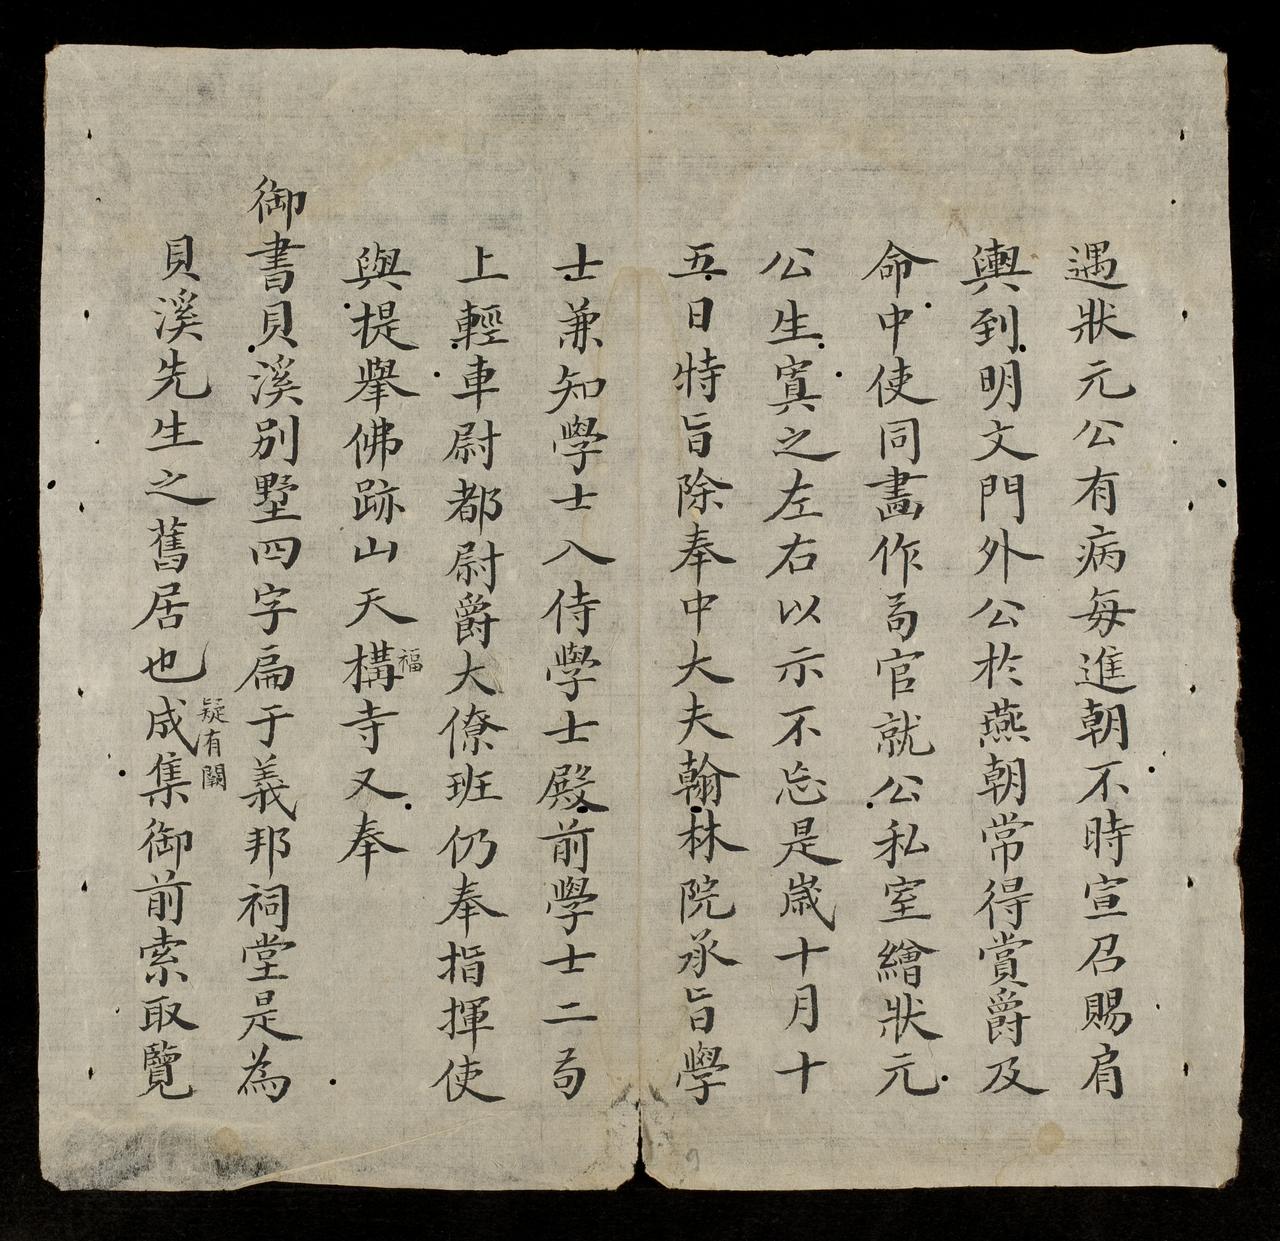 遇狀元公有病每進朝不時宣召賜肩
輿到明文門外公於燕朝常得賞爵及
命中使同畵作局官就公私室繪狀元
公生寘之左右以示不忘是歲十月十
五日特旨除奉中大夫翰林院承旨學
士兼知學士入侍學士殿前學士二局
上輕車尉都尉爵大僚班仍奉指揮使
與提舉佛跡山天構寺又奉
福
御書貝溪別墅四字扁于義邦祠堂是為
貝溪先生之舊居也成集御前索取覽
疑有闕